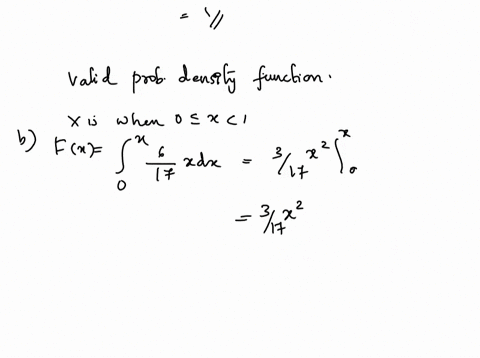 = 1//
Valid prob. density function.
X is when 0 ≤ x < 1
b) F(x) = ∫₀ˣ 6/17 x dx = 3/17 x² ∫₀ˣ
= 3/17 x²